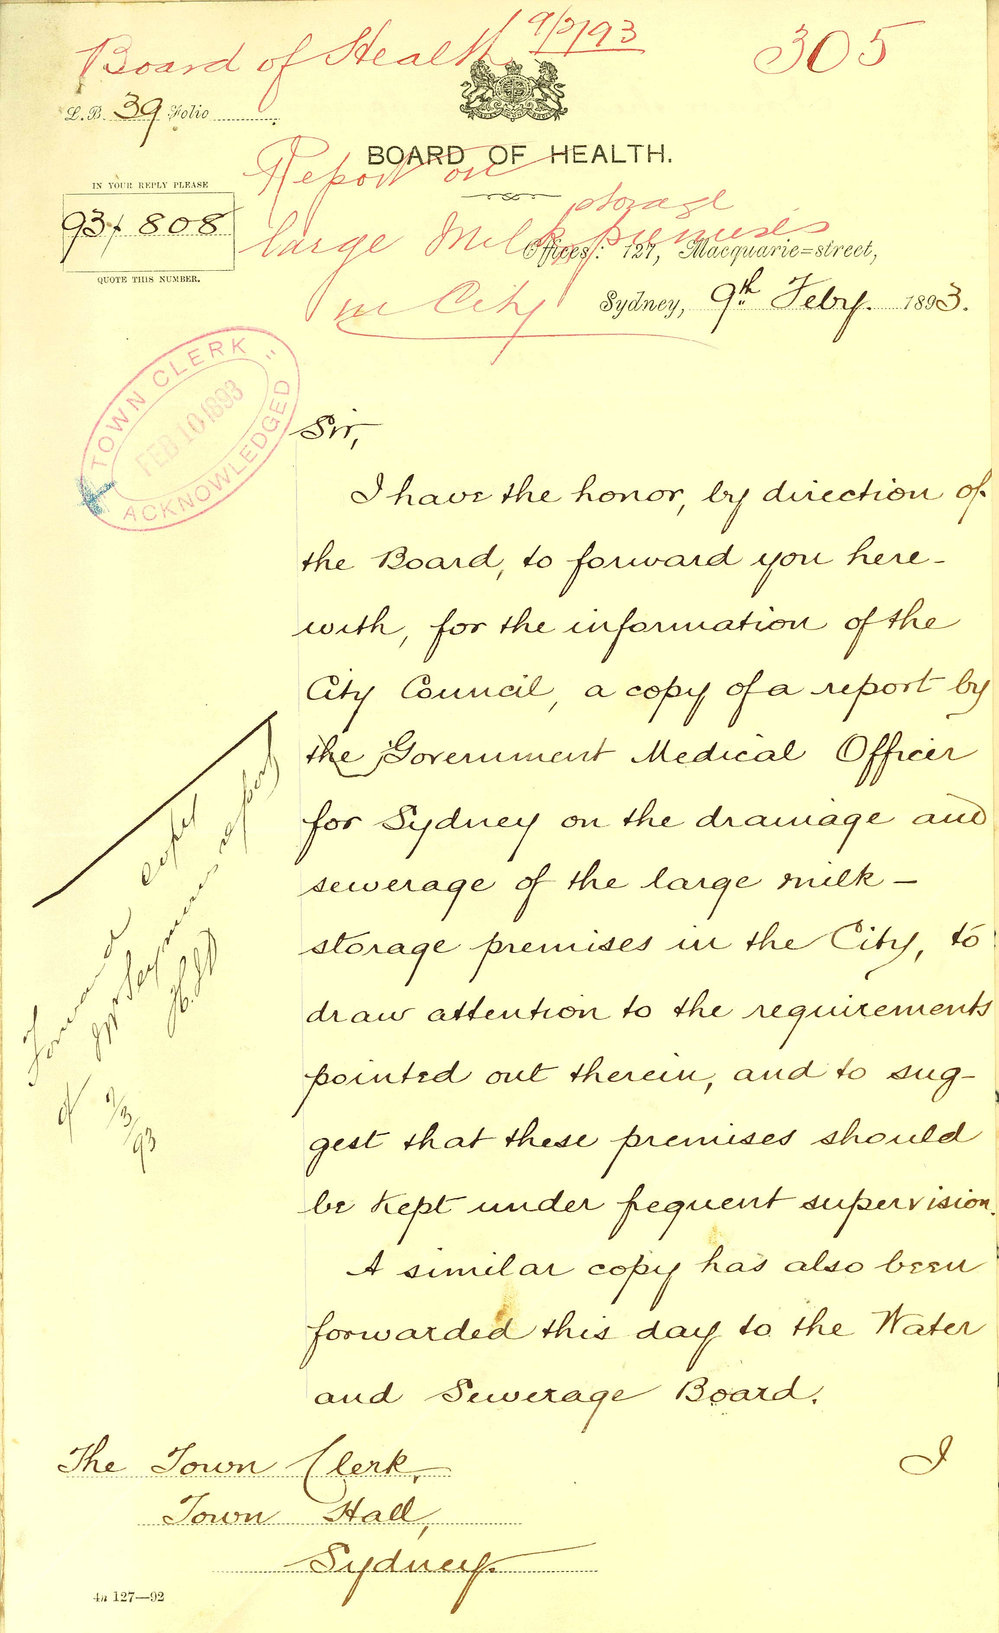 Board of Health 9/2/93
305
L.B. 39 Folio
BOARD OF HEALTH.
Report on
large Milk storage premises
in City
IN YOUR REPLY PLEASE
93/808
QUOTE THIS NUMBER.
Offices: 127, Macquarie=street,
Sydney, 9th Feby. 1893.
TOWN CLERK
FEB 10 1893
ACKNOWLEDGED
Sir,
I have the honor, by direction of
the Board, to forward you here-
with, for the information of the
City Council, a copy of a report by
the Government Medical Officer
for Sydney on the drainage and
sewerage of the large milk-
storage premises in the City, to
draw attention to the requirements
pointed out therein, and to sug-
gest that these premises should
be kept under fequent supervision.
A similar copy has also been
forwarded this day to the Water
and Sewerage Board.
Forward copy
of Mr Seymour's report
2/3/93
I
The Town Clerk,
Town Hall,
Sydney.
4a 127—92